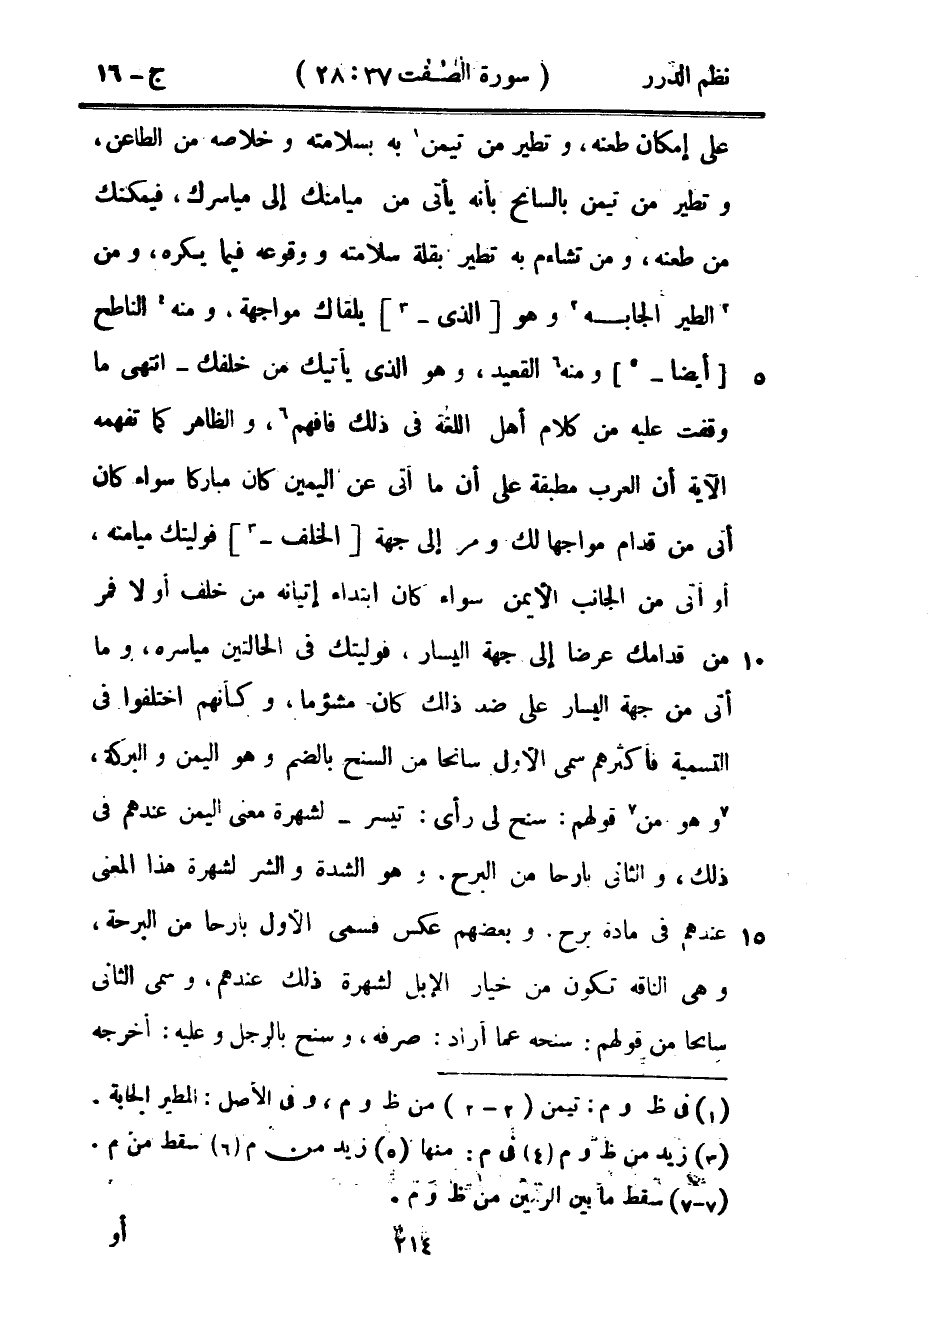 نظم الدرر ( سورة الصّٰفّٰت ٣٧ : ٢٨ ) ج - ١٦
على إمكان طعنه، و تطير من تيمن١ به بسلامته و خلاصه من الطاعن،
و تطير من تيمن بالسانح بأنه يأتى من ميامنك إلى مياسرك، فيمكنك
من طعنه، و من تشاءم به تطير بقلة سلامته و وقوعه فيما يكره، و من
٢الطير الجابـــه٢ و هو [ الذى - ٣ ] يلقاك مواجهة، و منه٤ الناطح
٥ [ أيضا - ٥ ] و منه٦ القعيد، و هو الذى يأتيك من خلفك - انتهى ما
وقفت عليه من كلام أهل اللغة فى ذلك فافهم٦، و الظاهر كما تفهمه
الآية أن العرب مطبقة على أن ما أتى عن اليمين كان مباركا سواء كان
أتى من قدام مواجها لك و مر إلى جهة [ الخلف - ٣ ] فوليتك ميامنه،
أو أتى من الجانب الأيمن سواء كان ابتداء إتيانه من خلف أو لا فمر
١٠ من قدامك عرضا إلى جهة اليسار، فوليتك فى الحالتين مياسره، و ما
أتى من جهة اليسار على ضد ذلك كان مشؤما، و كأنهم اختلفوا فى
التسمية فأكثرهم سمى الأول سانحا من السنح بالضم و هو اليمن و البركة،
٧و هو من٧ قولهم : سنح لى رأى : تيسر - لشهرة معنى اليمن عندهم فى
ذلك، و الثانى بارحا من البرح. و هو الشدة و الشر لشهرة هذا المعنى
١٥ عندهم فى مادة برح. و بعضهم عكس فسمى الأول بارحا من البرحة،
و هى الناقه تكون من خيار الإبل لشهرة ذلك عندهم، و سمى الثانى
سانحا من قولهم : سنحه عما أراد : صرفه، و سنح بالرجل و عليه : أخرجه
(١) فى ظ و م : تيمن (٢-٢) من ظ و م، و فى الأصل : المطير الجابة .
(٣) زيد من ظ و م (٤) فى م : منها (٥) زيد من م (٦) سقط من م .
(٧-٧) سقط ما بين الرقين من ظ و م .
٢١٤ أو